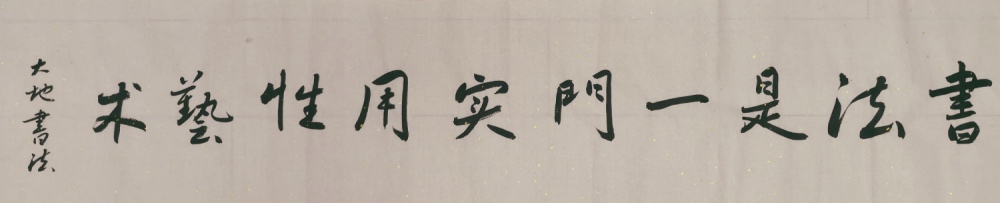 書法是一門实用性藝术
大地書法